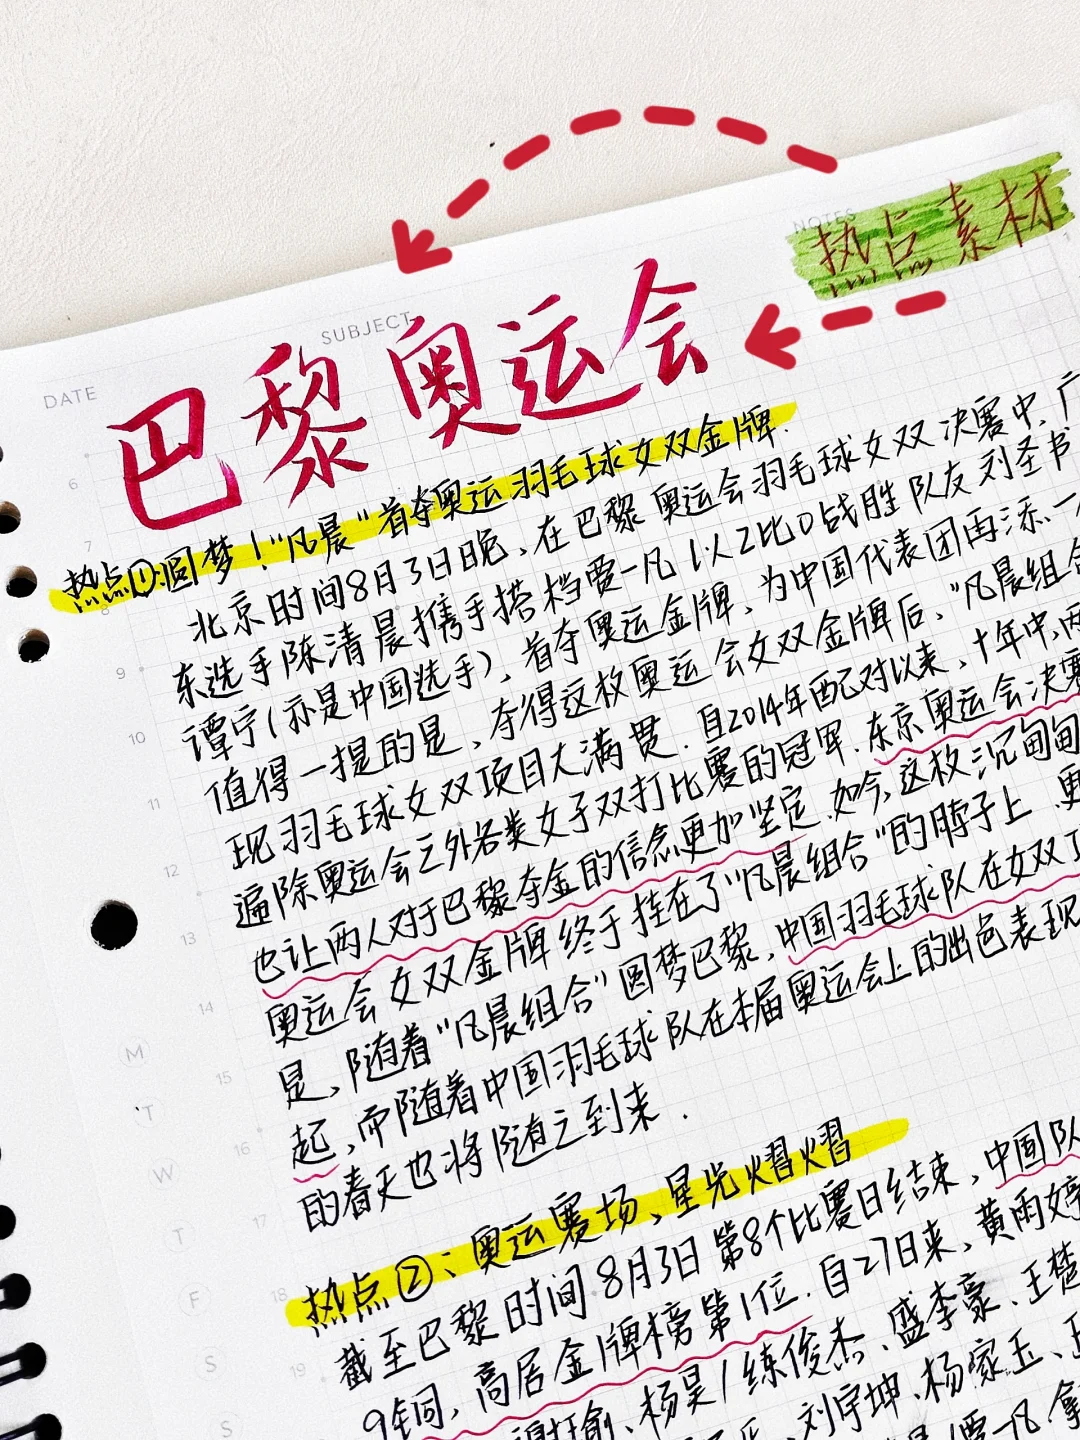 NOTES
热点素材
SUBJECT
DATE
巴黎奥运会
热点①:圆梦!"凡晨"首夺奥运羽毛球女双金牌.
北京时间8月3日晚、在巴黎奥运会羽毛球女双决赛中,广
东选手陈清晨携手搭档贾一凡以2比0战胜队友刘圣书
谭宁(亦是中国选手)、首夺奥运金牌、为中国代表团再添一
值得一提的是、夺得这枚奥运会女双金牌后、"凡晨组合
现羽毛球女双项目大满贯.自2014年配对以来、十年中,两
遍除奥运会之外各类女子双打比赛的冠军.东京奥运会决赛
也让两人对于巴黎夺金的信念更加坚定.如今,这枚沉甸甸
奥运会女双金牌终于挂在了"凡晨组合"的脖子上.更
是、随着"凡晨组合"圆梦巴黎,中国羽毛球队在女双
起,而随着中国羽毛球队在本届奥运会上的出色表现
的春天也将随之到来.
热点②:奥运赛场、星光熠熠
截至巴黎时间8月3日第8个比赛日结束,中国队
9铜,高居金牌榜第1位.自27日来,黄雨婷
谢瑜、杨昊/练俊杰、盛李豪、王楚
刘宇坤、杨家玉、王
贾一凡拿
6
7
8
9
10
11
12
13
14
15
16
17
18
19
M
T
W
T
F
S
S